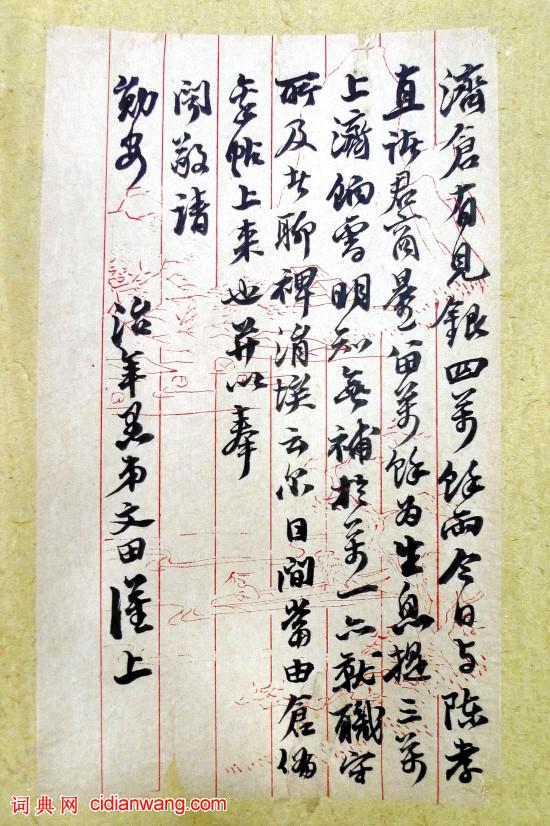 濟倉有見銀四萬餘兩今日与陳孝
直諸君商量留萬餘为生息提三萬
上濟餉需明知無補於萬一亦就職守
所及者聊裨涓埃云尔日間當由倉備
帖上来也并以奉
聞敬請
勛安
治年愚弟文田謹上
词典网 cidianwang.com